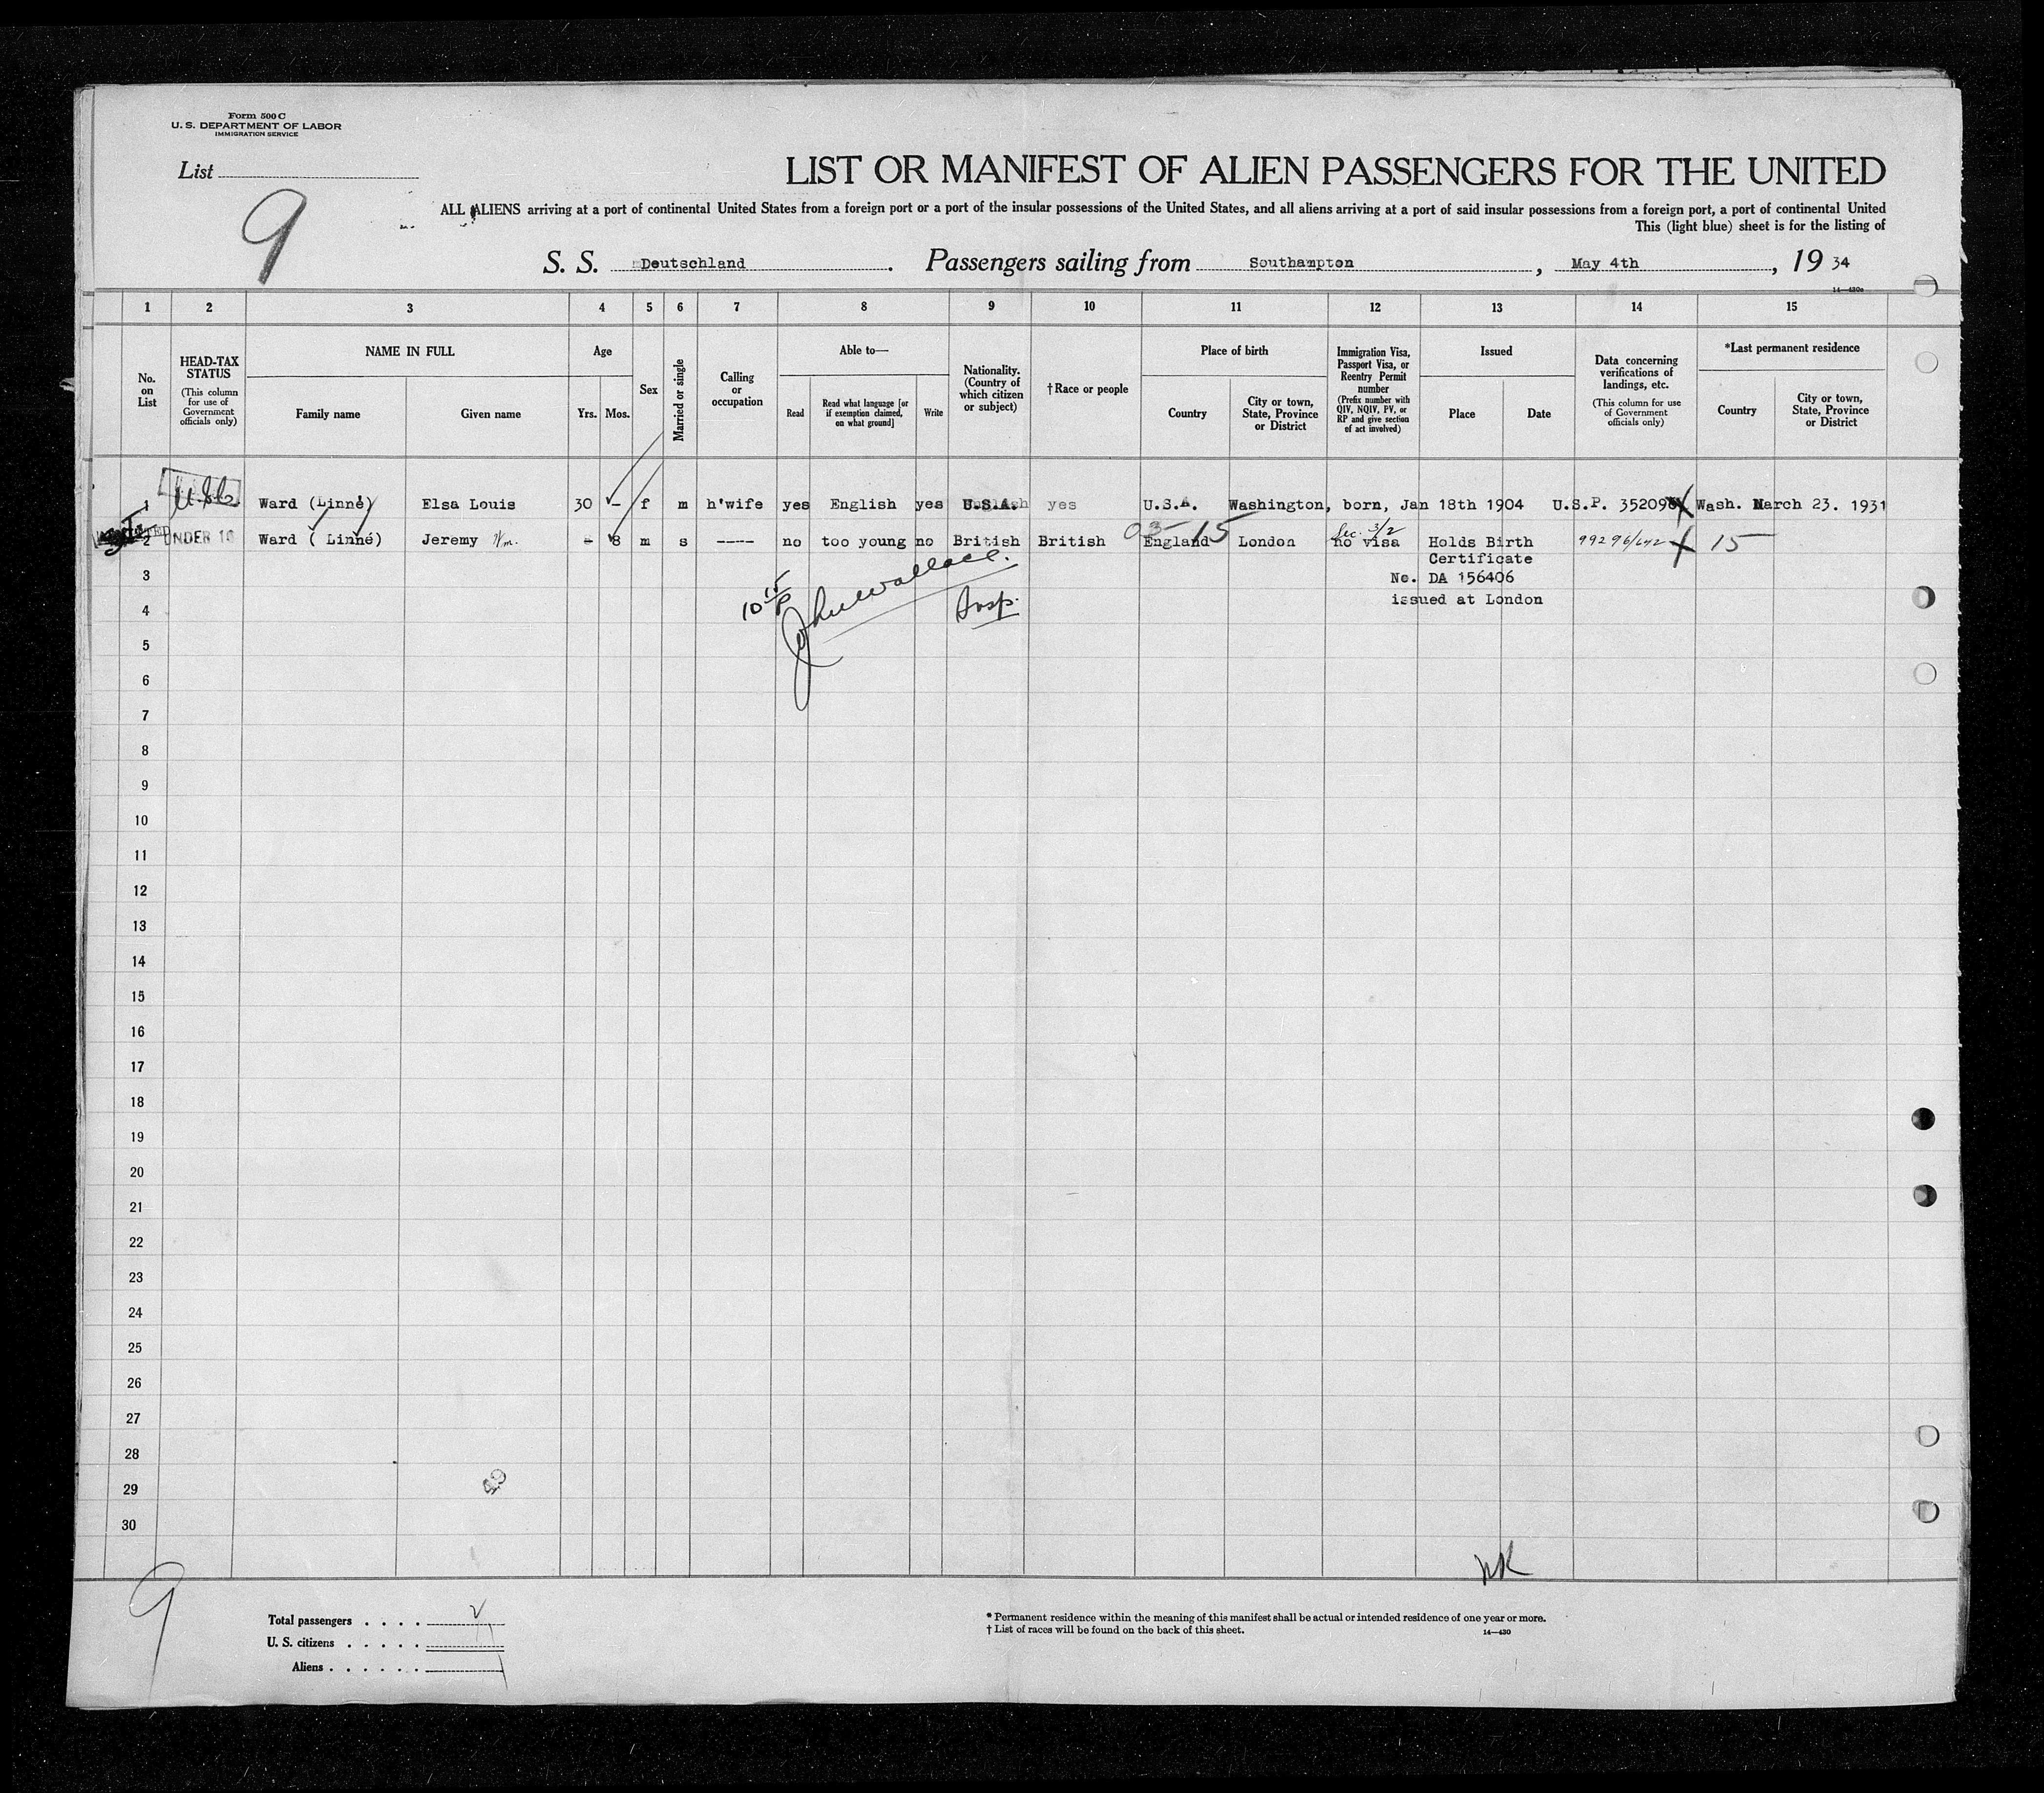 Form 500 C
U. S. DEPARTMENT OF LABOR
IMMIGRATION SERVICE
List
9
LIST OR MANIFEST OF ALIEN PASSENGERS FOR THE UNITED
ALL ALIENS arriving at a port of continental United States from a foreign port or a port of the insular possessions of the United States, and all aliens arriving at a port of said insular possessions from a foreign port, a port of continental United
This (light blue) sheet is for the listing of
S. S. Deutschland. Passengers sailing from Southampton, May 4th, 19 34
14—430a
1 2 3 4 5 6 7 8 9 10 11 12 13 14 15
No. on List
HEAD-TAX STATUS (This column for use of Government officials only)
NAME IN FULL
Family name
Given name
Age
Yrs. Mos.
Sex
Married or single
Calling or occupation
Able to—
Read
Read what language [or if exemption claimed, on what ground]
Write
Nationality. (Country of which citizen or subject)
†Race or people
Place of birth
Country
City or town, State, Province or District
Immigration Visa, Passport Visa, or Reentry Permit number (Prefix number with QIV, NQIV, PV, or RP and give section of act involved)
Issued
Place
Date
Data concerning verifications of landings, etc. (This column for use of Government officials only)
*Last permanent residence
Country
City or town, State, Province or District
1 Ward (Linné) Elsa Louis 30 - f m h'wife yes English yes U.S.A. yes U.S.A. Washington, born, Jan 18th 1904 U.S.P. 35209 Wash. March 23. 1931
03 15 Sec. 3/2
2 UNDER 16 Ward ( Linné) Jeremy Wm. - 8 m s ---- no too young no British British England London no visa Holds Birth 99296/642 15
Certificate
3 No. DA 156406
4 issued at London
10 15 P John Wallace. Insp.
5
6
7
8
9
10
11
12
13
14
15
16
17
18
19
20
21
22
23
24
25
26
27
28
29
30
9
Total passengers . . . . 2
U. S. citizens . . . . . 1
Aliens . . . . . . 1
* Permanent residence within the meaning of this manifest shall be actual or intended residence of one year or more.
† List of races will be found on the back of this sheet. 14—430